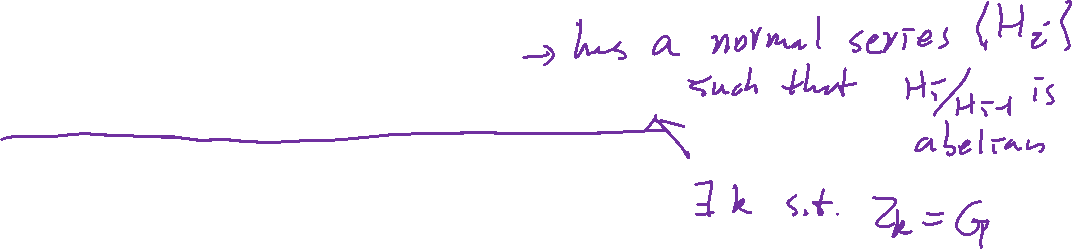 → has a normal series {H_i}
such that H_i/H_{i-1} is
abelian
∃ k s.t. Z_k = G